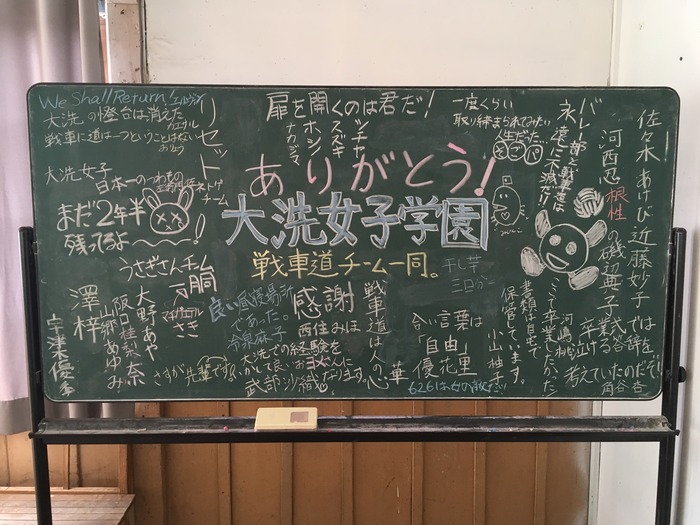 We Shall Return! エルヴィン
大洗の燈台は消えた
カエサル
戦車に道は一つということはない
おりょう
大洗女子
日本一のつわもの
左衛門佐
リセット
ネトゲチーム
まだ2年半
残ってるよ〜〜!
うさぎさんチーム
一同
澤 梓
宇津木優季
山郷あゆみ
阪口桂利奈
大野あや
丸山紗希
さすが先輩です。
扉を開くのは君だ!
ナカジマ
ホシノ
スズキ
ツチヤ
ありがとう!
大洗女子学園
戦車道チーム一同。
良い昼寝場所
であった。
冷泉麻子
感謝
西住みほ
大洗での経験を
いかして良いお嫁さんに
なります。
武部沙織
戦車道は人の心
華
干し芋
三日分
合い言葉は
「自由」
優花里
626は女の敵だ!
一度くらい
取り締まられてみたい
人生だった…
バレー部と戦車道は
永遠に不滅です!
佐々木あけび
河西忍
根性
近藤妙子
磯辺典子
書類は自宅で
保管しています。
小山柚子
ここで卒業したかった!
河嶋桃
卒業式では
泣ける答辞を
考えていたのだで。
角谷杏